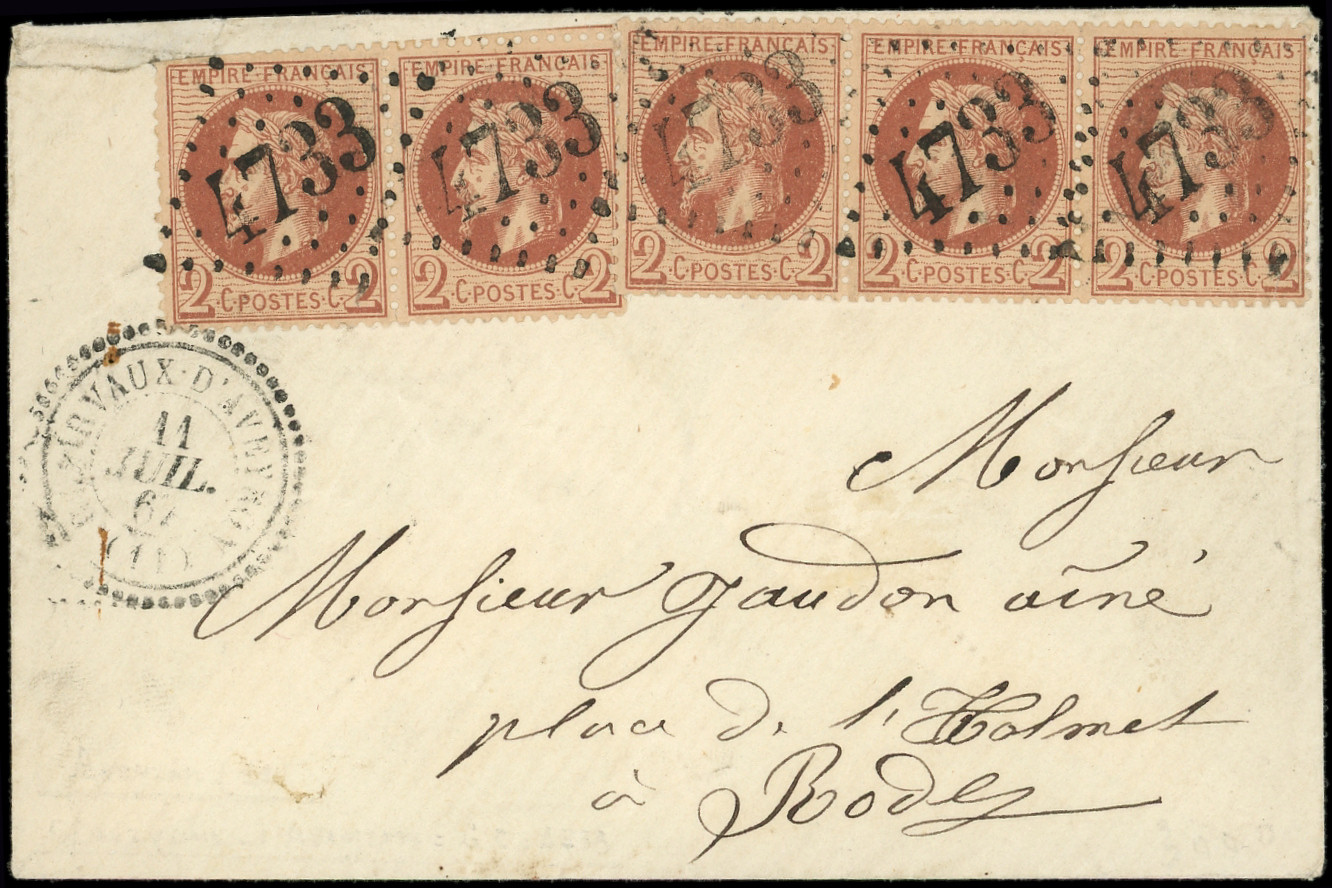 EMPIRE FRANÇAIS EMPIRE FRANÇAIS EMPIRE FRANÇAIS EMPIRE FRANÇAIS EMPIRE FRANÇAIS
4733 4733 4733 4733 4733
2 C·POSTES·C· 2 2 ·C·POSTES·C· 2 2 ·C·POSTES·C· 2 2 ·C·POSTES·C· 2 2 ·C·POSTES·C· 2
D'AVEYRON
11
JUIL.
(11)
Monsieur
Monsieur Jaudon aîné
place de l'Holmet
à Rodez